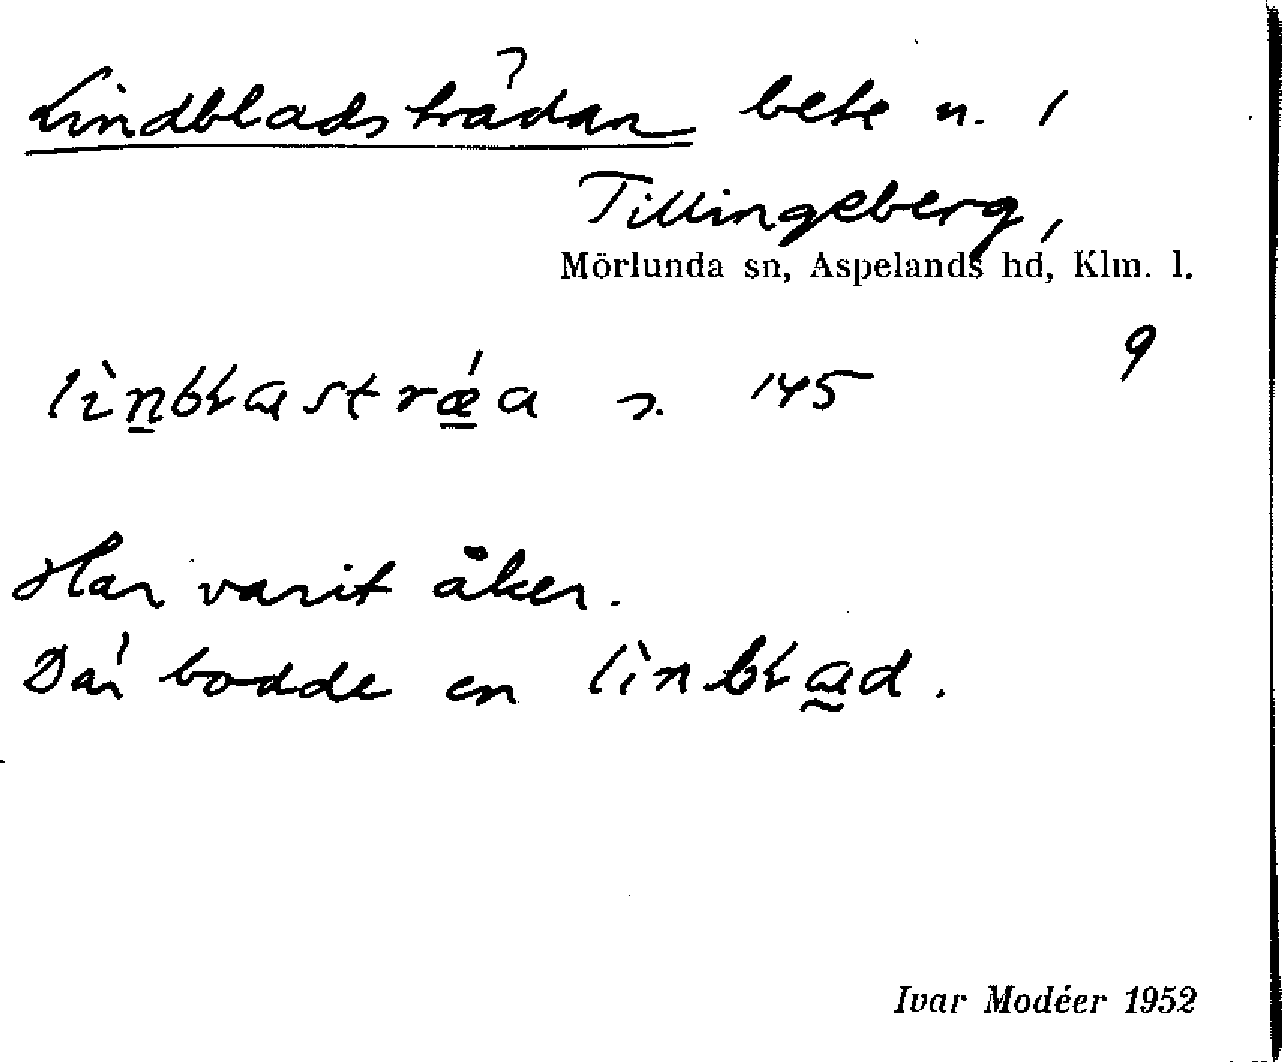 ?
Lindbladsträdan bete n. 1
Tillingeberg,
Mörlunda sn, Aspelands hd, Klm. l.
9
145
Har varit åker.
Där bodde en
Ivar Modéer 1952